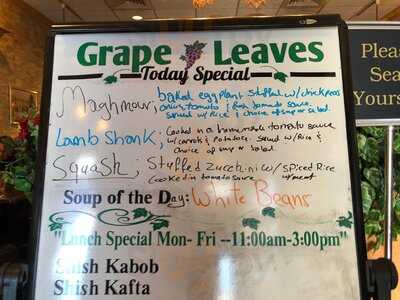 Grape Leaves
Today Special
Maghmour; baked eggplant stuffed w/ chickpeas
onion, tomato & fresh tomato sauce
served w/ Rice & choice of soup or salad.
Lamb Shank; Cooked in a homemade tomato sauce
w/ carrots & potatoes. served w/ Rice &
choice of soup or salad.
Squash; Stuffed Zucchini w/ spiced Rice
cooked in tomato sauce w/ meat
Soup of the Day: White Beans
"Lunch Special Mon- Fri --11:00am-3:00pm"
Shish Kabob
Shish Kafta
Please
Sea
Yours